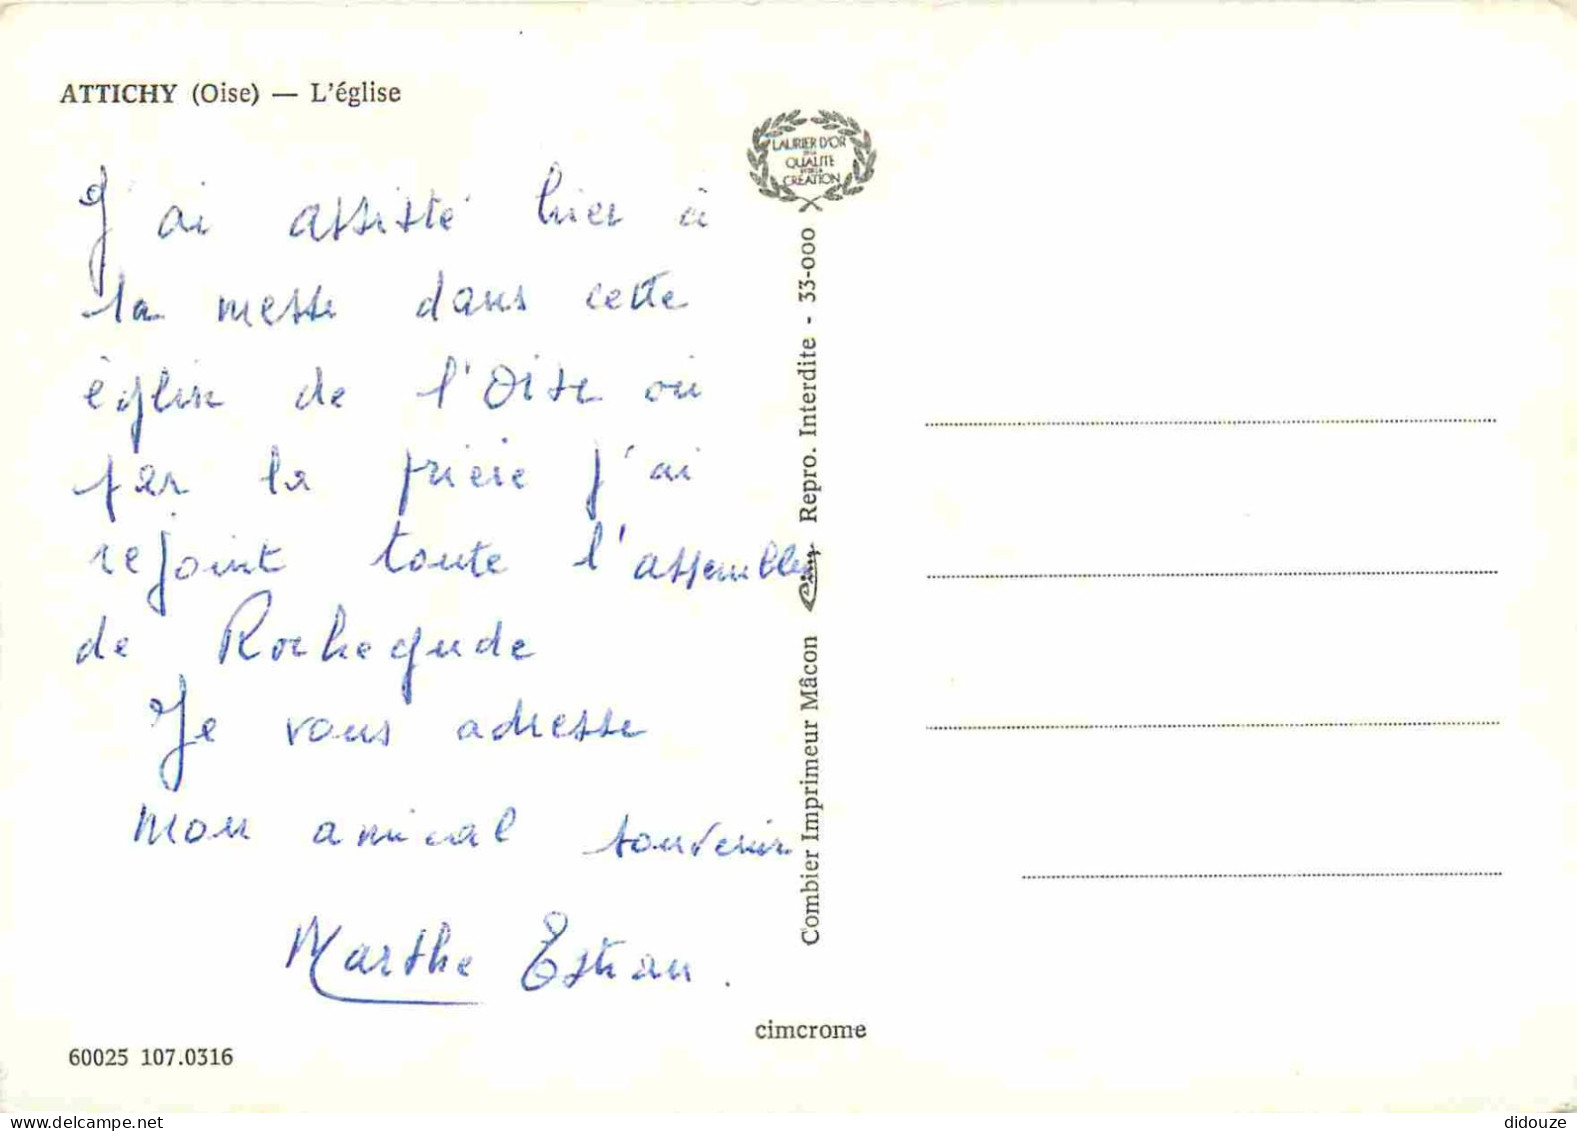 ATTICHY (Oise) — L'église
J'ai assisté hier à
la messe dans cette
église de l'Oise où
par la prière j'ai
rejoint toute l'assemblée
de Rochegude
Je vous adresse
mon amical souvenir
Marthe
LAURIER D'OR
DE LA
QUALITE
ET DE LA
CREATION
Combier Imprimeur Mâcon Cim Repro. Interdite - 33-000
cimcrome
60025 107.0316
delcampe.net
didouze